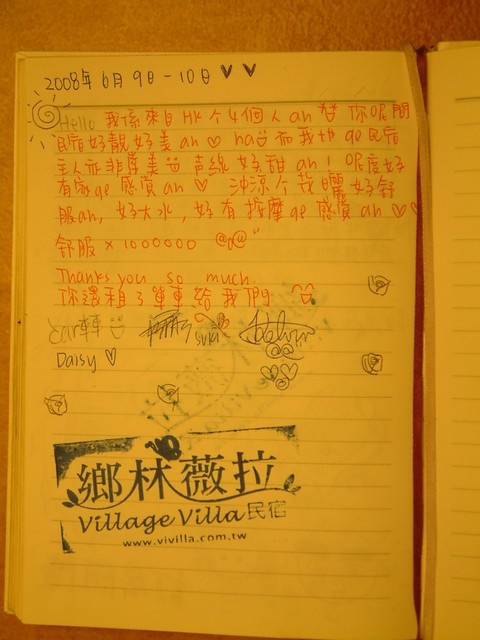 2008年 6月 9日 - 10日 ♥ ♥
Hello 我係來自HK 4個人 an 你呢間
民宿好靚好美 an ♡ ha 而我地 ge 民宿
主人亦非常美 声線好甜 an! 呢度好
有家 ge 感覺 an ♡ 沖涼 好舒
服 an, 好大水, 好有按摩 ge 感覺 an ♡♡
舒服 × 1000000 @@"
Thanks you so much
你還租了單車給我們
Suki
Daisy ♡
鄉林薇拉
Village Villa 民宿
www.vivilla.com.tw